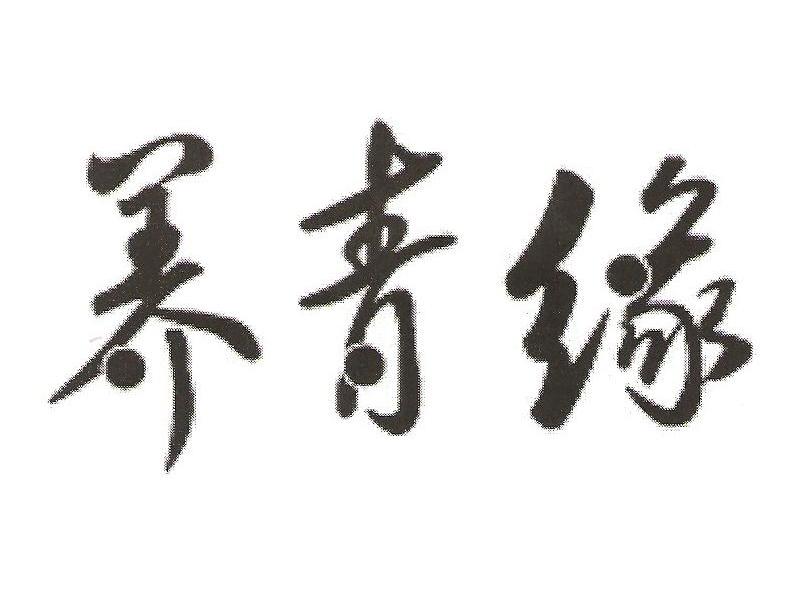 养青缘